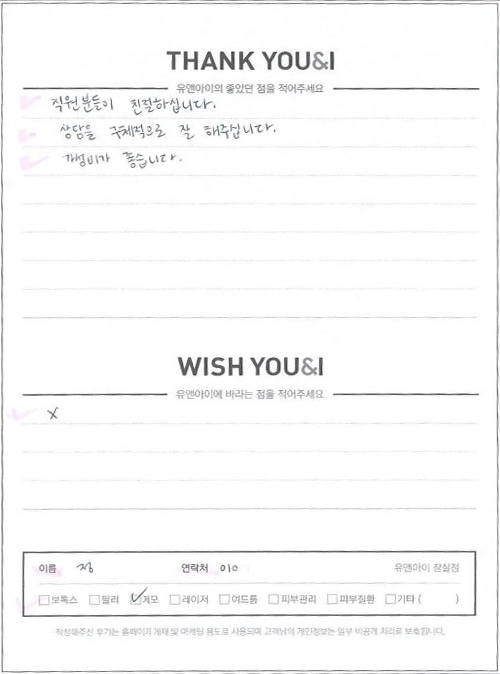 THANK YOU&I
유앤아이의 좋았던 점을 적어주세요
직원분들이 친절하십니다.
상담을 구체적으로 잘 해주십니다.
가성비가 좋습니다.
WISH YOU&I
유앤아이에 바라는 점을 적어주세요
X
이름 정 연락처 010 유앤아이 잠실점
보톡스 필러 제모 레이저 여드름 피부관리 피부질환 기타 ( )
작성해주신 후기는 홈페이지 게재 및 마케팅 용도로 사용되며 고객님의 개인정보는 일부 비공개 처리로 보호됩니다.